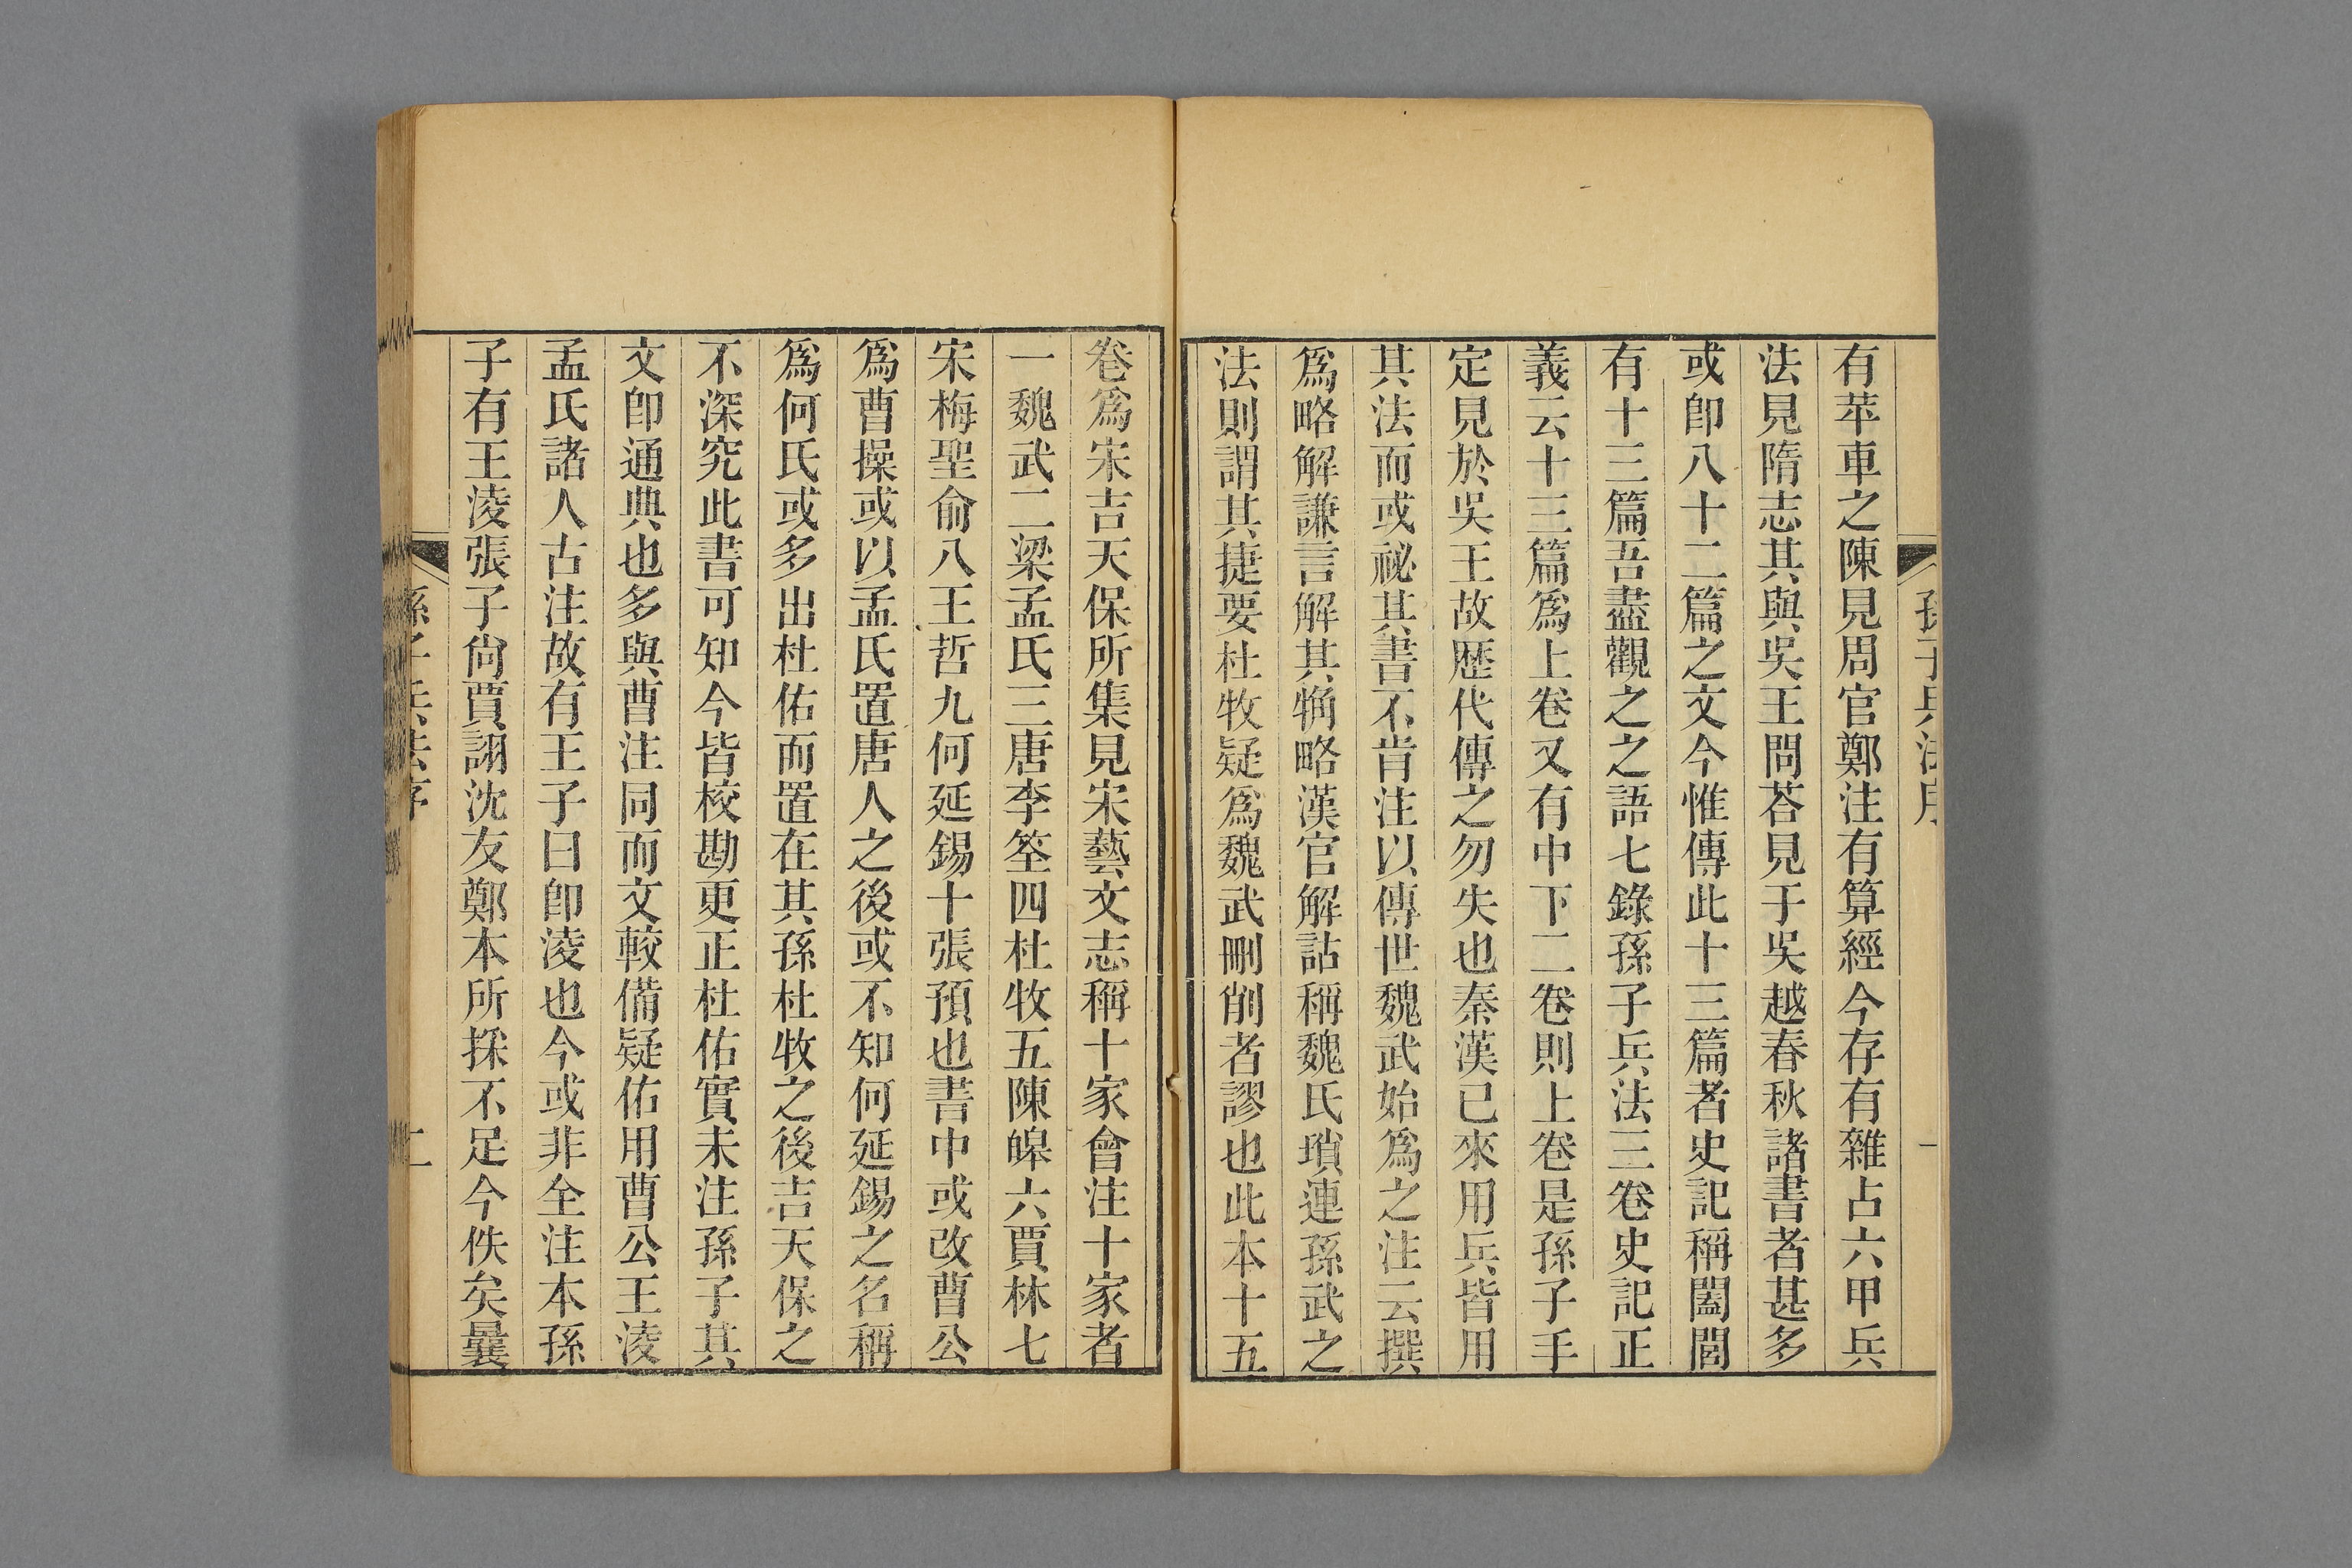 孫子兵法序
一
有苹車之陳見周官鄭注有算經今存有雜占六甲兵
法見隋志其與吳王問荅見于吳越春秋諸書者甚多
或卽八十二篇之文今惟傳此十三篇者史記稱闔閭
有十三篇吾盡觀之之語七錄孫子兵法三卷史記正
義云十三篇爲上卷又有中下二卷則上卷是孫子手
定見於吳王故歷代傳之勿失也秦漢已來用兵皆用
其法而或祕其書不肯注以傳世魏武始爲之注云撰
爲略解謙言解其觕略漢官解詁稱魏氏瑣連孫武之
法則謂其捷要杜牧疑爲魏武刪削者謬也此本十五
卷爲宋吉天保所集見宋藝文志稱十家會注十家者
一魏武二梁孟氏三唐李筌四杜牧五陳皥六賈林七
宋梅聖俞八王哲九何延錫十張預也書中或改曹公
爲曹操或以孟氏置唐人之後或不知何延錫之名稱
爲何氏或多出杜佑而置在其孫杜牧之後吉天保之
不深究此書可知今皆校勘更正杜佑實未注孫子其
文卽通典也多與曹注同而文較備疑佑用曹公王淩
孟氏諸人古注故有王子曰卽淩也今或非全注本孫
子有王淩張子尙賈詡沈友鄭本所採不足今佚矣曩
孫子兵法序
二